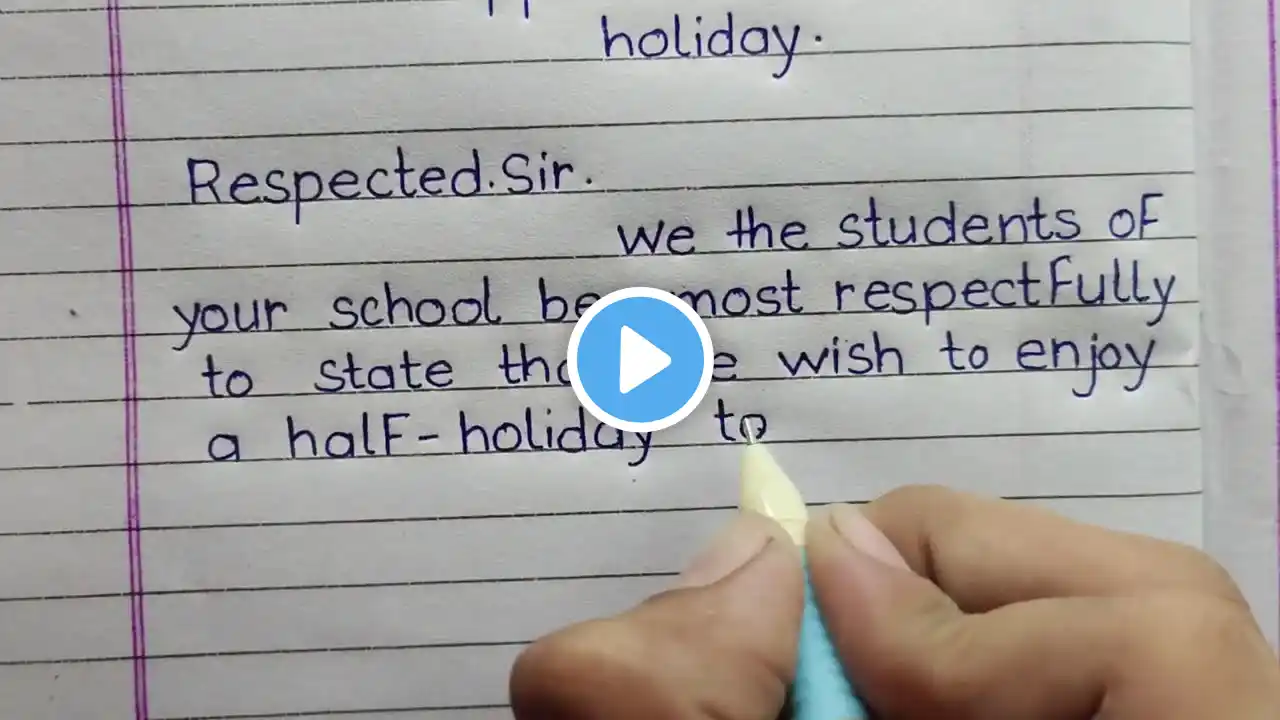 holiday.
Respected. Sir.
We the students of
your school most respectfully
to state wish to enjoy
a half-holiday to